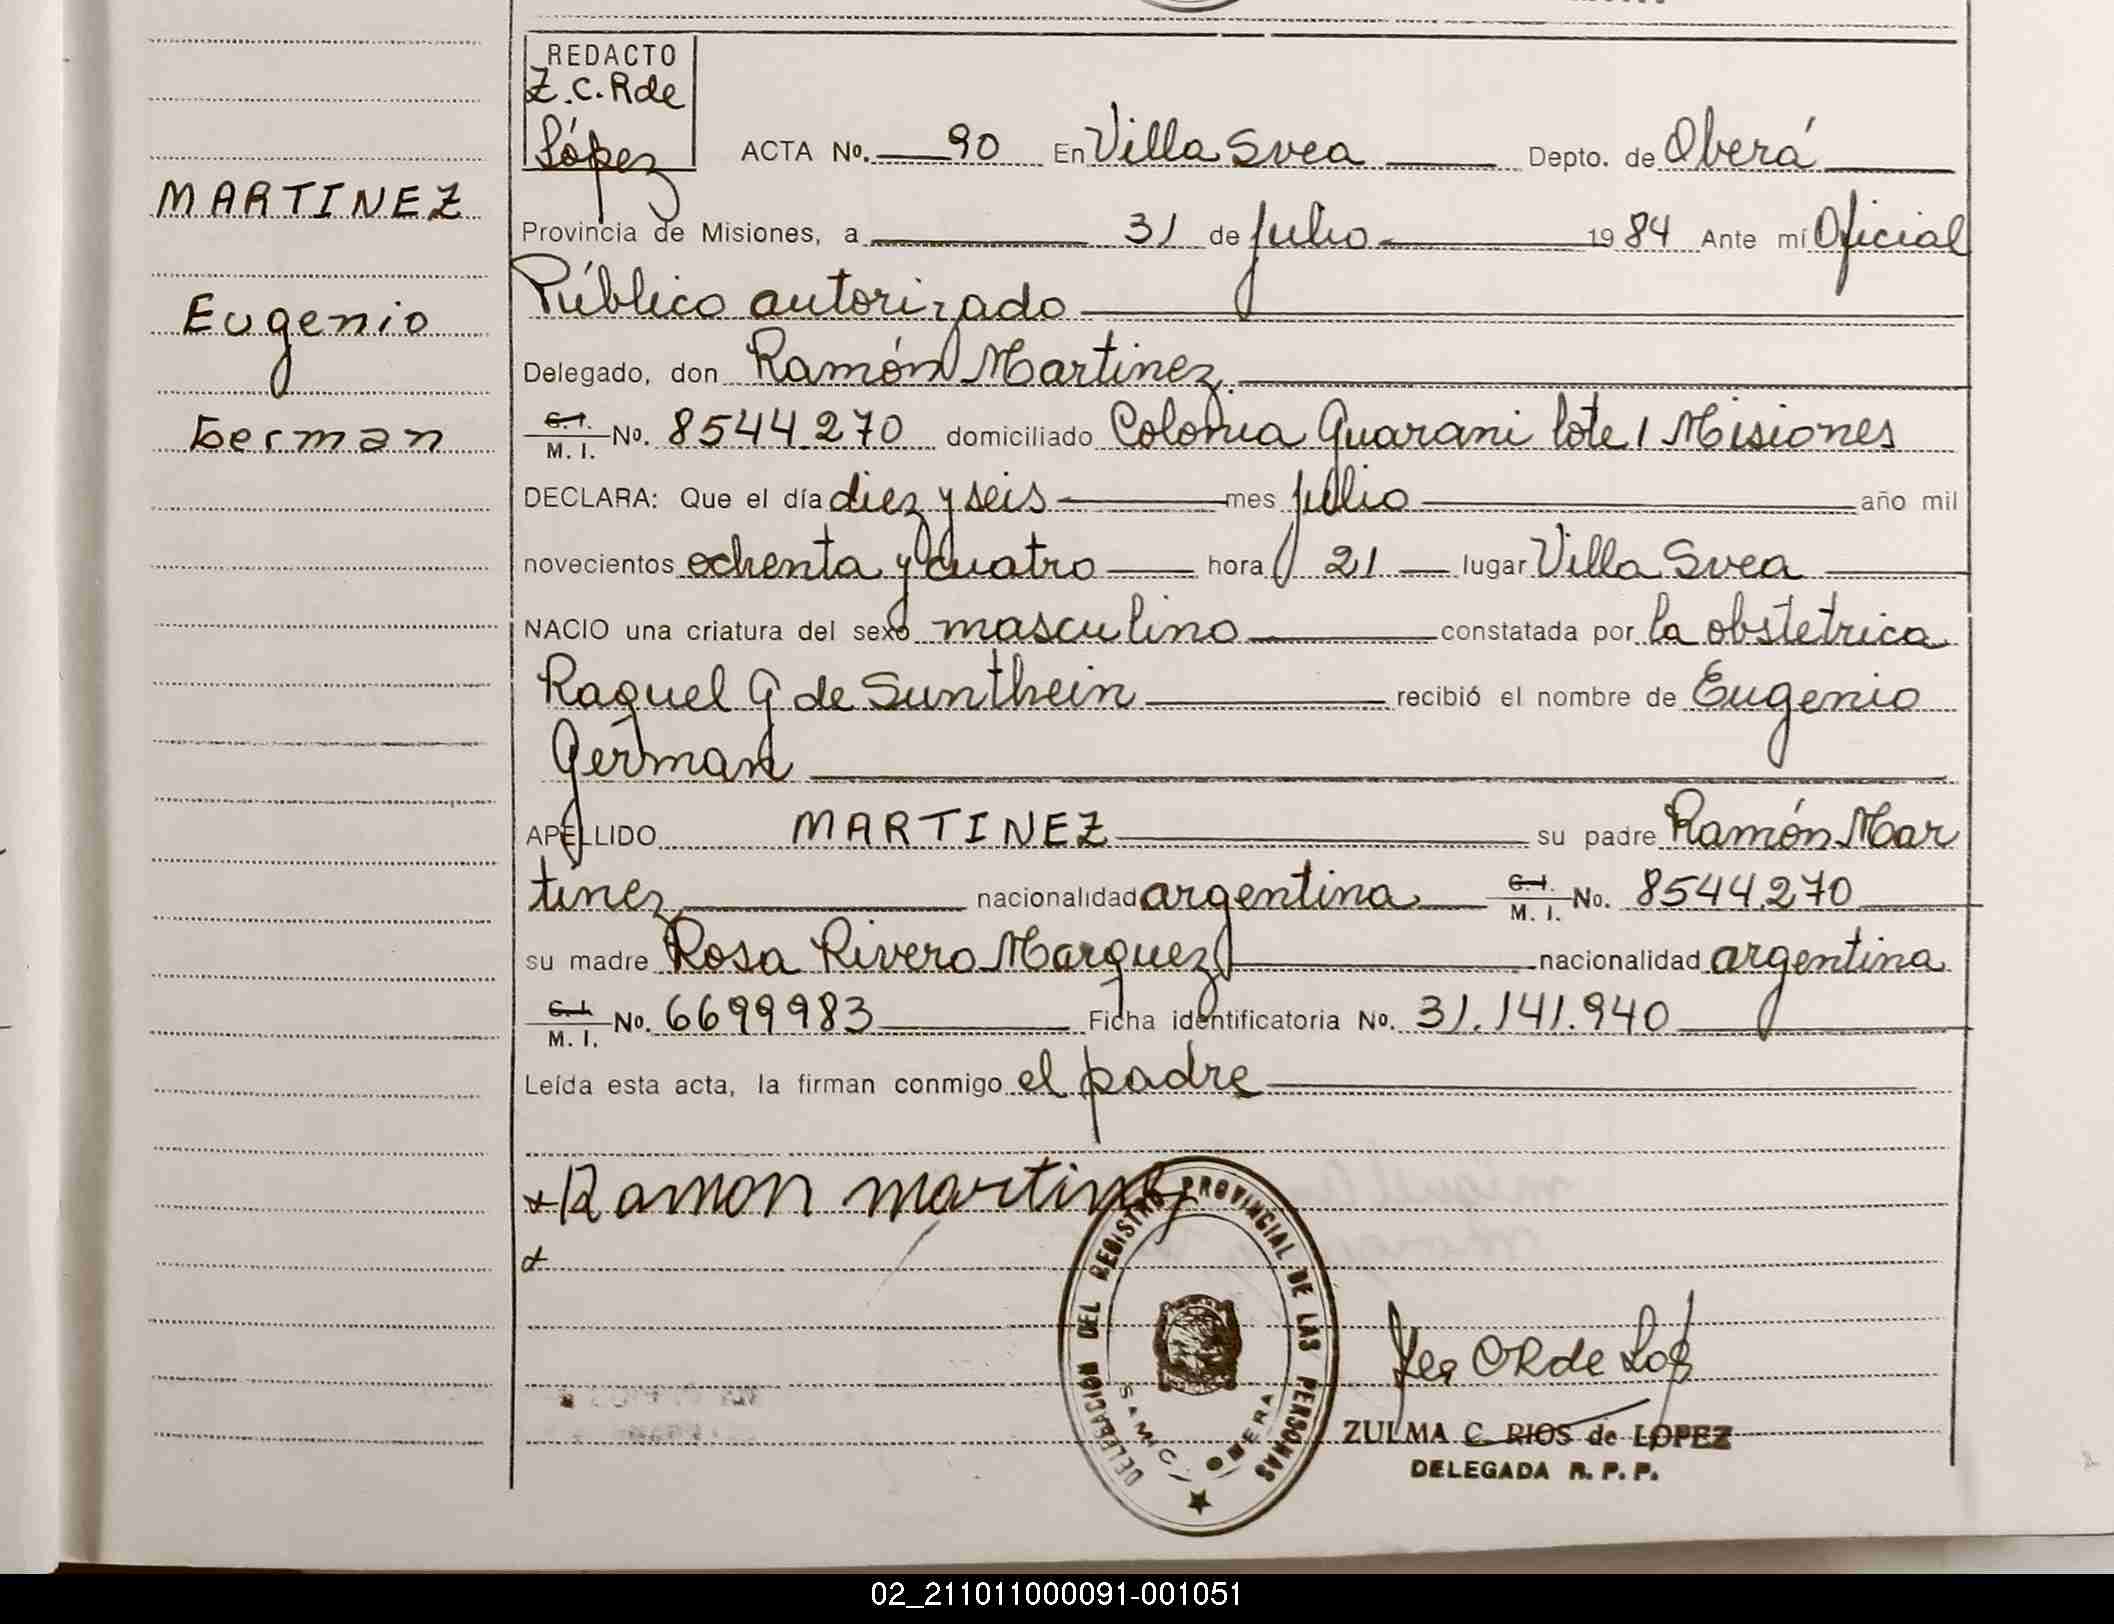 REDACTO
Z.C.Rde
López
ACTA No. 90 En Villa Svea Depto. de Oberá
MARTINEZ
Provincia de Misiones, a 31 de julio 1984 Ante mí Oficial
Público autorizado
Eugenio
Delegado, don Ramón Martinez
German
C.I. M.I. No. 8544.270 domiciliado Colonia Guarani lote 1 Misiones
DECLARA: Que el día diez y seis mes julio año mil
novecientos ochenta y cuatro hora 21 lugar Villa Svea
NACIO una criatura del sexo masculino constatada por la obstetrica
Raquel G de Sunthein recibió el nombre de Eugenio
Gérman
APELLIDO MARTINEZ su padre Ramón Mar
tinez nacionalidad argentina C.I. M.I. No. 8544.270
su madre Rosa Rivero Marquez nacionalidad argentina
C.I. M.I. No. 6699983 Ficha identificatoria No. 31.141.940
Leída esta acta, la firman conmigo el padre
x Ramon martinez
x
DELEGACIÓN DEL REGISTRO PROVINCIAL DE LAS PERSONAS
OBERA
CRde
ZULMA C. RIOS de LOPEZ
DELEGADA R.P.P.
02_211011000091-001051